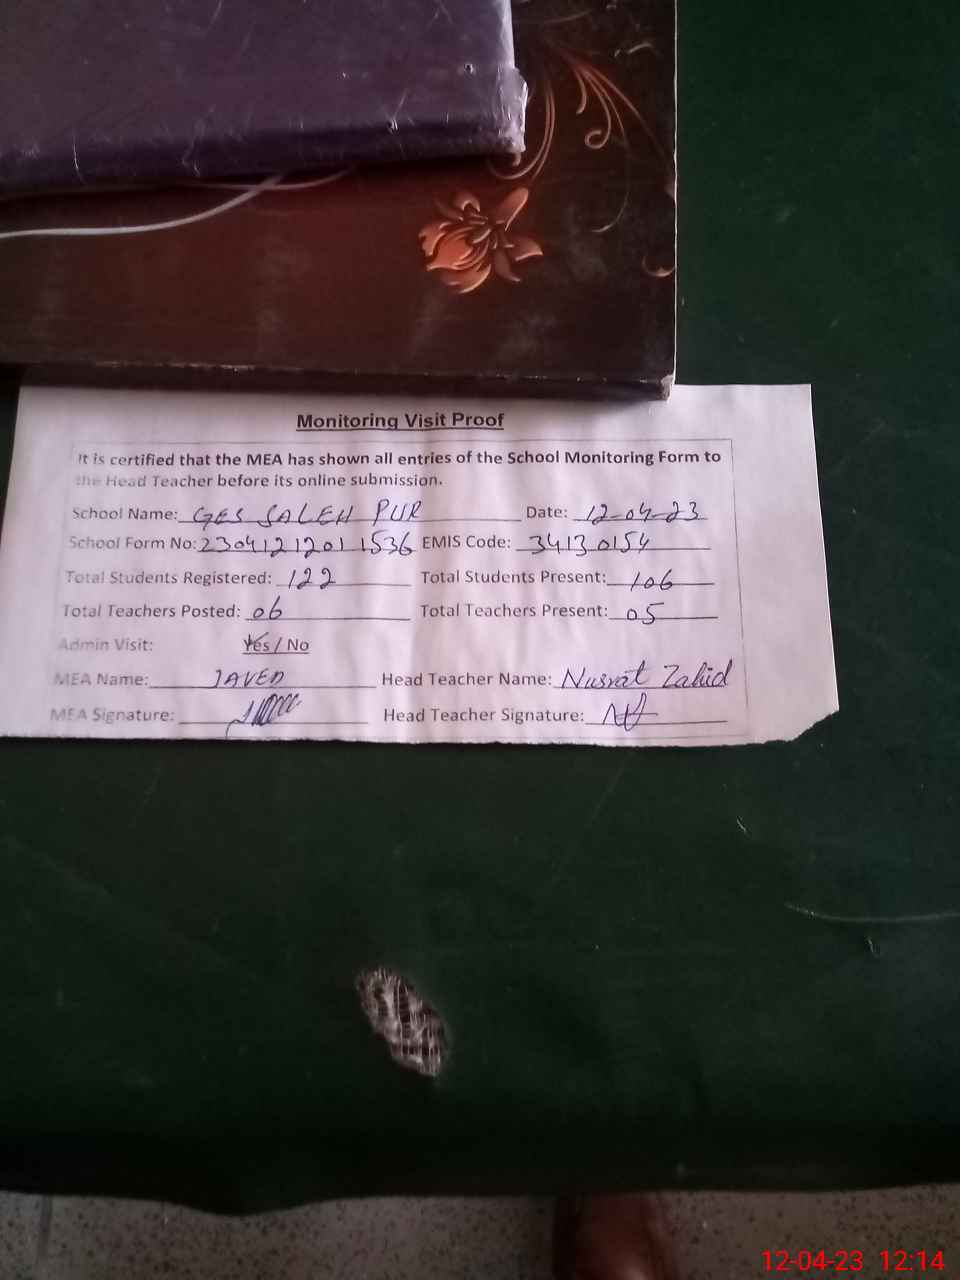 Monitoring Visit Proof
It is certified that the MEA has shown all entries of the School Monitoring Form to
the Head Teacher before its online submission.
School Name: GES SALEH PUR Date: 12-04-23
School Form No: 230412120111536 EMIS Code: 34130154
Total Students Registered: 122 Total Students Present: 106
Total Teachers Posted: 06 Total Teachers Present: 05
Admin Visit: Yes / No
MEA Name: JAVED Head Teacher Name: Nusrat Zahid
MEA Signature: Head Teacher Signature:
12-04-23 12:14